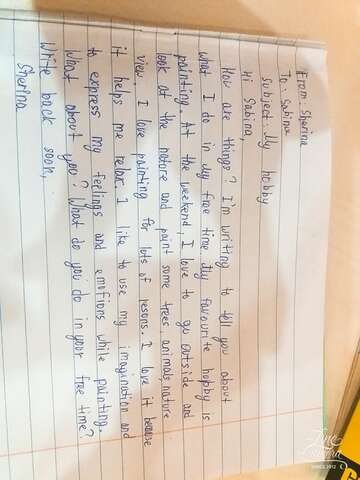 From: Sherina
To: Sabina
Subject: My hobby
Hi Sabina,
How are things? I'm writing to tell you about
what I do in My free time. My favourite hobby is
painting. At the weekend, I love to go outside and
look at the nature and paint some trees animals nature
view. I love painting for lots of resons. I love it because
it helps me relax. I like to use my imagination and
to express my feelings and emotions while painting.
What about you? What do you do in your free time?
Write back soon,
Sherina
SINCE 2012